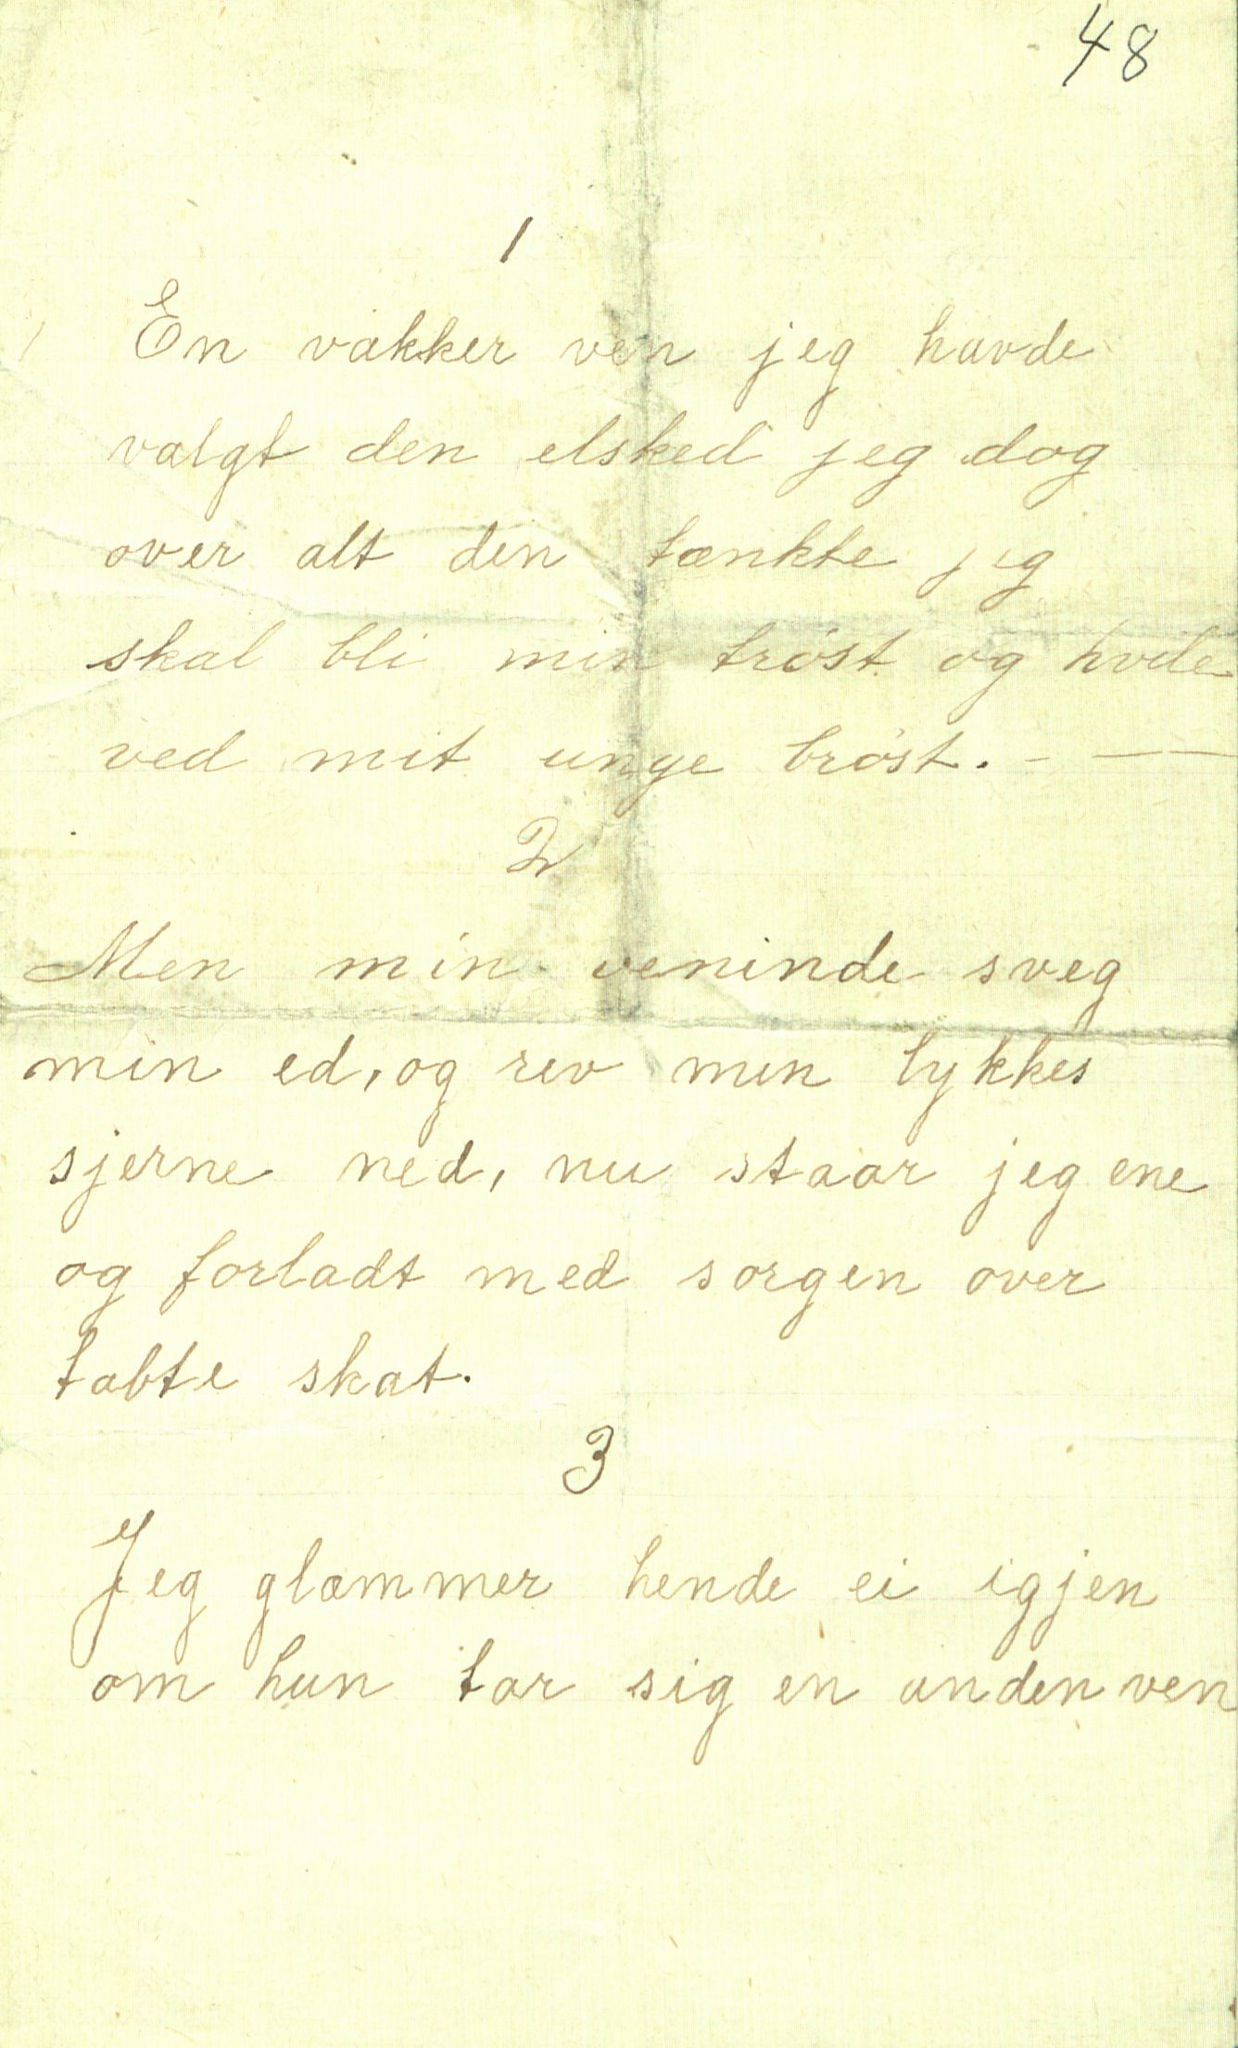 48
1
En vakker ven jeg havde
valgt den elsked jeg dog
over alt den tænkte jeg
skal bli min trøst og hvile
ved mit unge brøst. - —
2
Men min veninde sveg
min ed, og rev min lykkes
sjerne ned, nu staar jeg ene
og forladt med sorgen over
tabte skat.
3
Jeg glæmmer hende ei igjen
om hun tar sig en anden ven